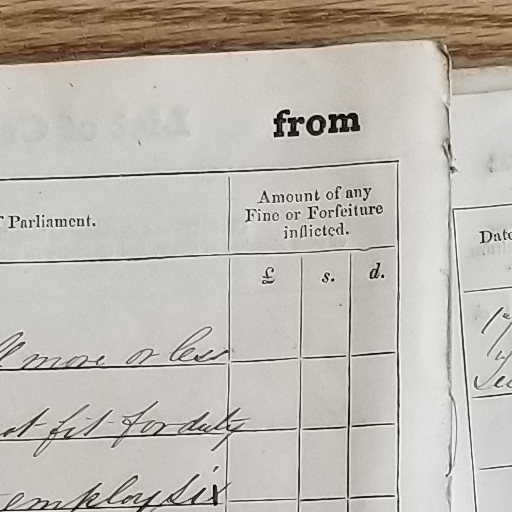 from
Parliament.
Amount of any
Fine or Forfeiture
inflicted.
£ s. d.
more or less
fit for duty
employ six
Date